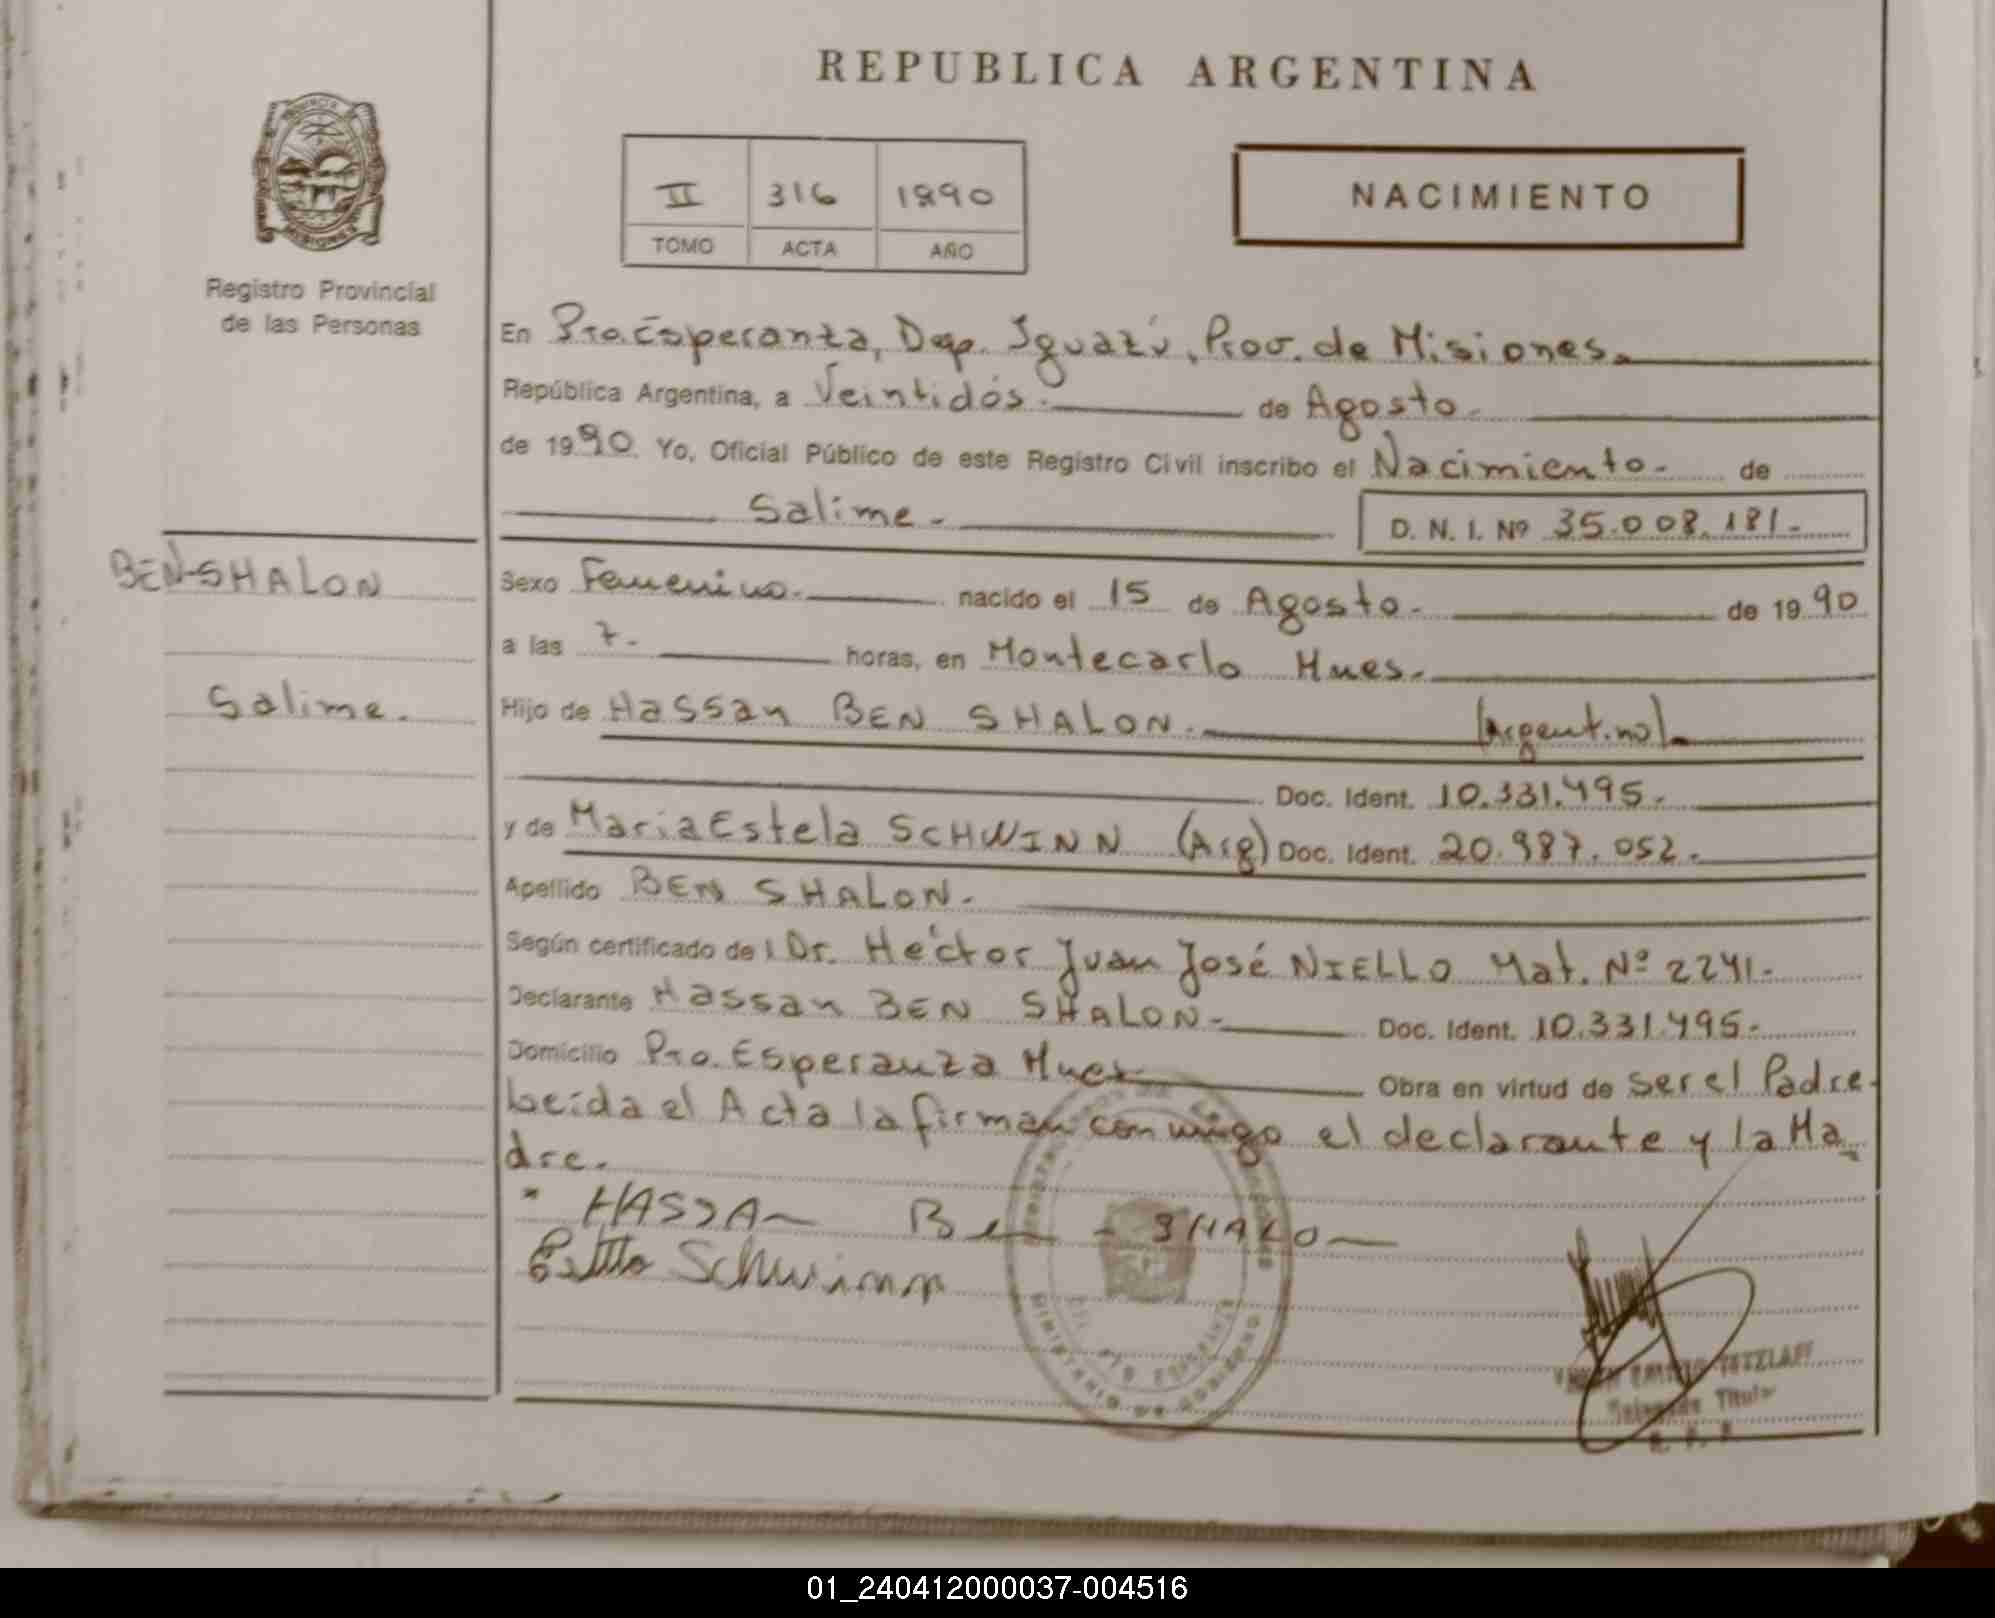 REPUBLICA ARGENTINA
PROVINCIA
MISIONES
II 316 1990
TOMO ACTA AÑO
NACIMIENTO
Registro Provincial
de las Personas
En Pto. Esperanza, Dep. Iguazú, Prov. de Misiones.
República Argentina, a Veintidós. de Agosto.
de 1990. Yo, Oficial Público de este Registro Civil inscribo el Nacimiento. de
Salime. D. N. I. Nº 35.008.181.
BEN-SHALON
Salime.
Sexo Femenino. nacido el 15 de Agosto. de 1990
a las 7. horas, en Montecarlo Mnes.
Hijo de Hassan BEN SHALON. (Argentino).
Doc. Ident. 10.331.495.
y de Maria Estela SCHWINN (Arg) Doc. Ident. 20.987.052.
Apellido BEN SHALON.
Según certificado de: Dr. Héctor Juan José NIELLO Mat. Nº 2241.
Declarante Hassan BEN SHALON. Doc. Ident. 10.331.495.
Domicilio Pto. Esperanza Mnes. Obra en virtud de ser el Padre.
Leida el Acta la firman conmigo el declarante y la Ma
dre.
HASSAN Ben - SHALON
Schwinn
MINISTERIO DE GOBIERNO
TETZLAFF
Delegado Titular
R. P. P.
01_240412000037-004516